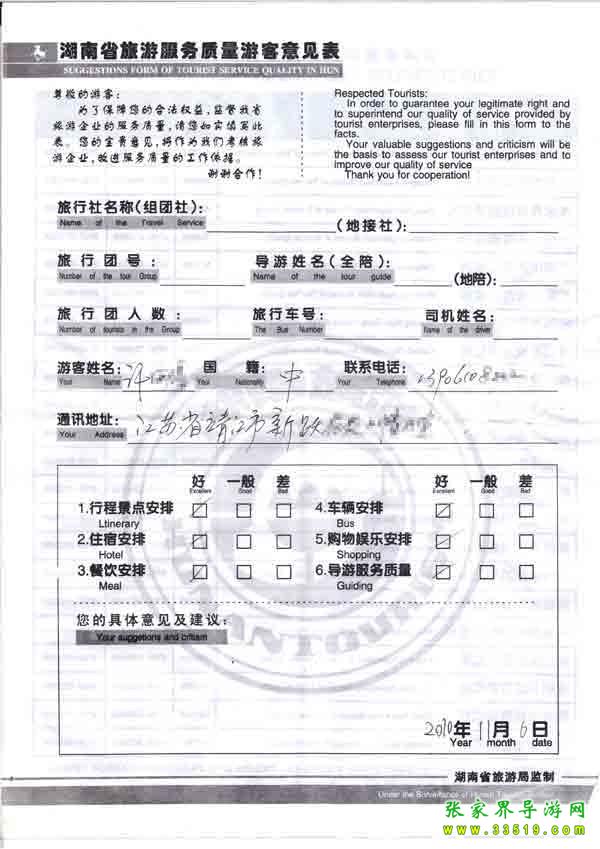 湖南省旅游服务质量游客意见表
SUGGESTIONS FORM OF TOURIST SERVICE QUALITY IN HUN
尊敬的游客：
为了保障您的合法权益，监督我省
旅游企业的服务质量，请您如实填写此
表。您的宝贵意见，将作为我们考核旅
游企业，改进服务质量的工作依据。
谢谢合作！
Respected Tourists:
In order to guarantee your legitimate right and
to superintend our quality of service provided by
tourist enterprises, please fill in this form to the
facts.
Your valuable suggestions and criticism will be
the basis to assess our tourist enterprises and to
improve our quality of service
Thank you for cooperation!
旅行社名称(组团社)： (地接社)：
Name of the Travel Service
旅行团号： 导游姓名(全陪)： (地陪)：
Number of the tour Group Name of the tour guide
旅行团人数： 旅行车号： 司机姓名：
Number of tourists in the Group The Bus Number Name of the driver
游客姓名：许 国籍：中 联系电话：
Your Name Your Nationality Your Telephone
通讯地址：江苏省靖江市新跃
Your Address
好 一般 差 好 一般 差
Excellent Good Bad Excellent Good Bad
1.行程景点安排 4.车辆安排
Ltinerary Bus
2.住宿安排 5.购物娱乐安排
Hotel Shopping
3.餐饮安排 6.导游服务质量
Meal Guiding
您的具体意见及建议：
Your suggetions and critism
2010年11月6日
Year month date
湖南省旅游局监制
Under the Surveillance of Hunan
张家界导游网
www.33519.com